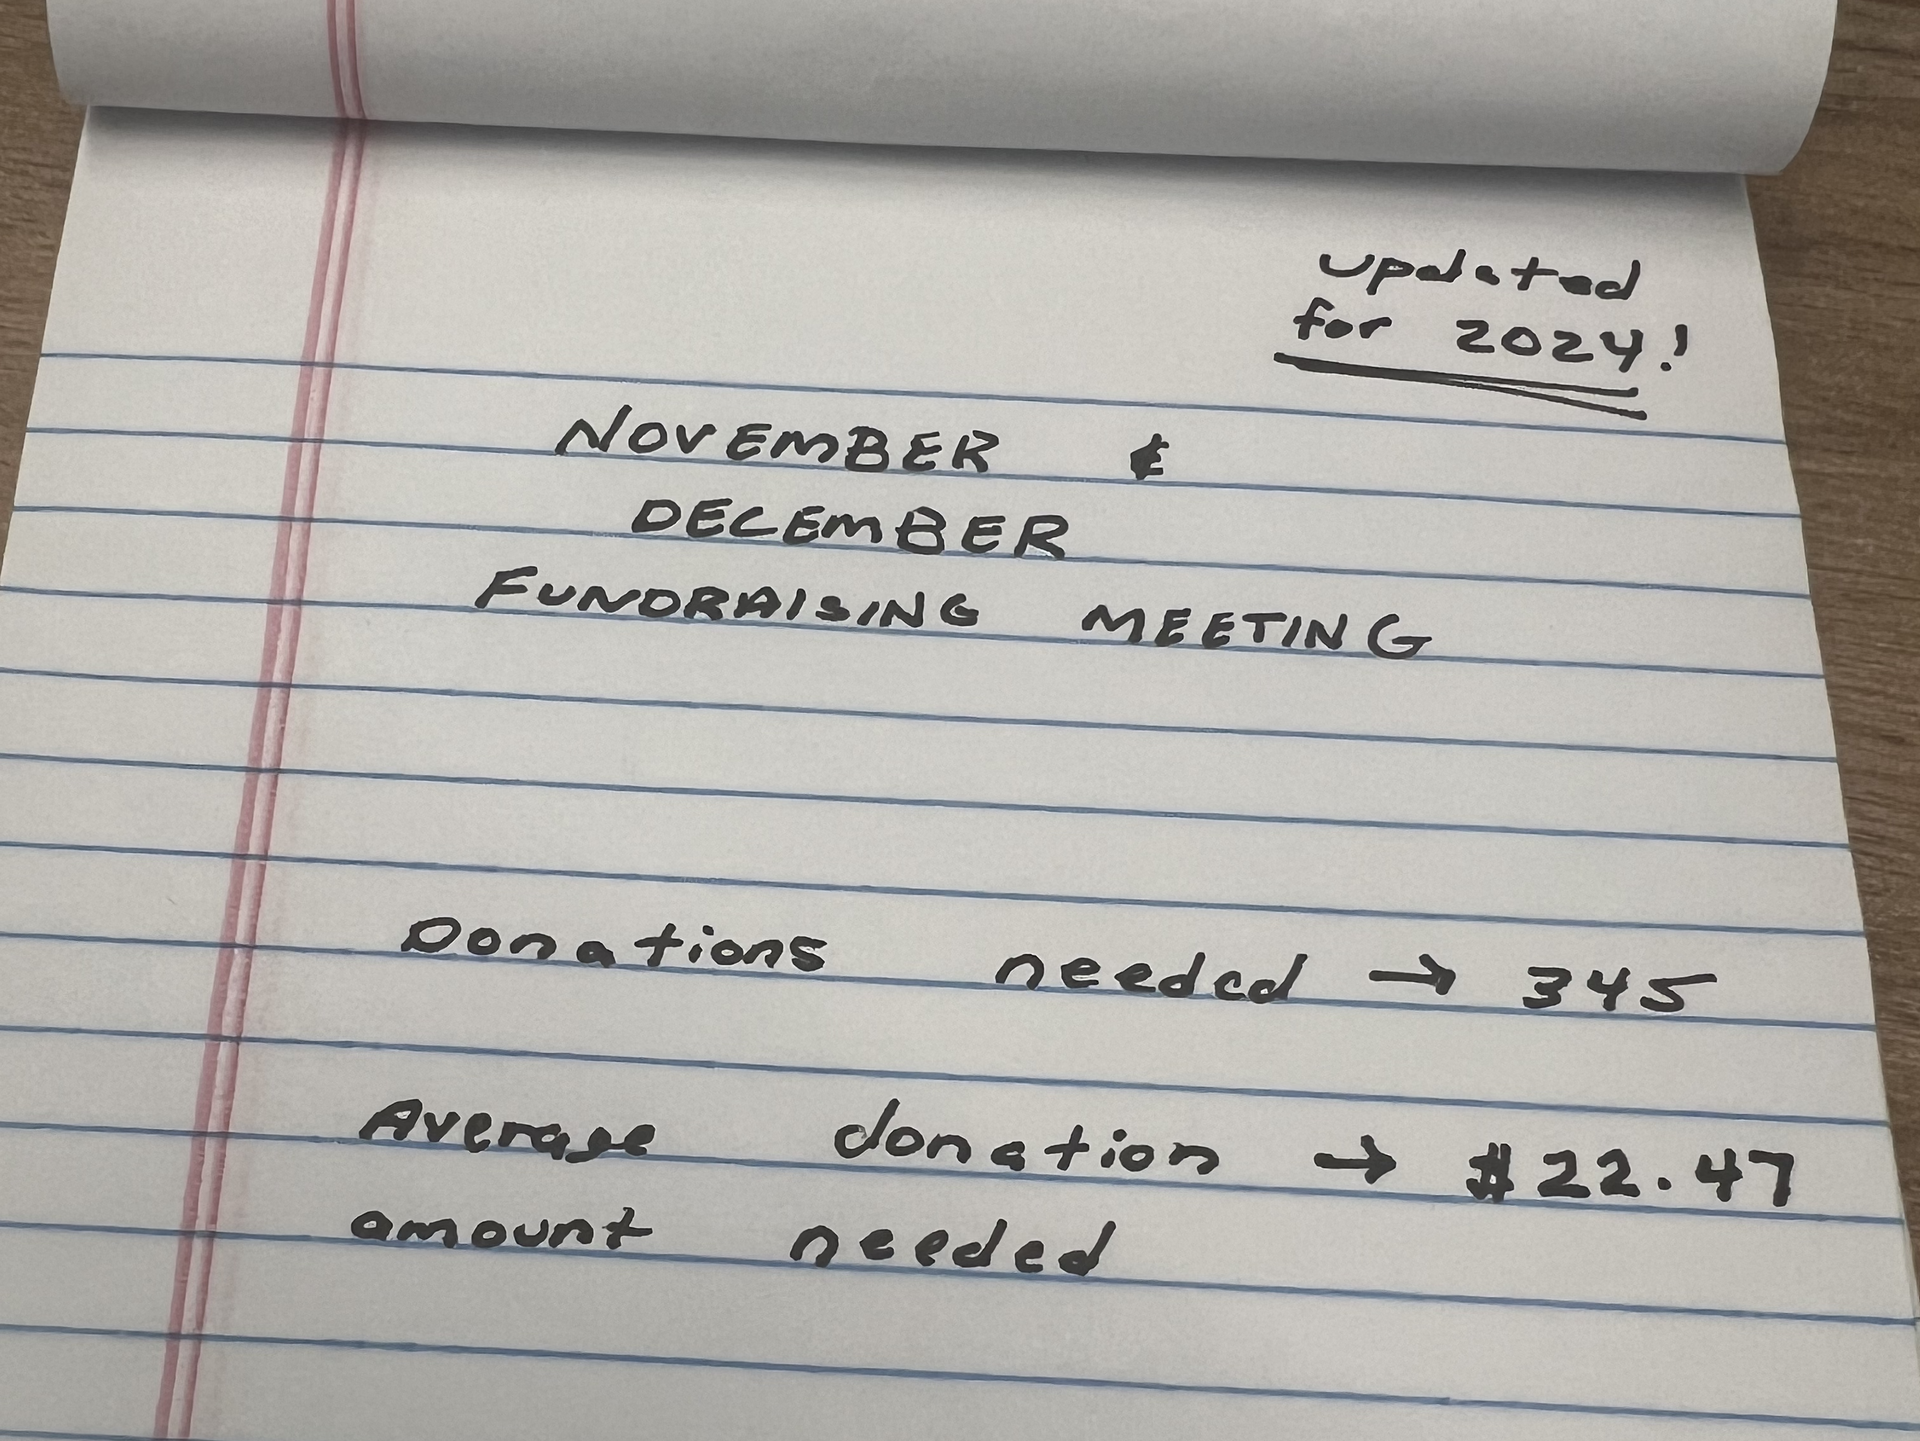 updated
for 2024!
NOVEMBER &
DECEMBER
FUNDRAISING MEETING
Donations needed → 345
Average donation → $22.47
amount needed